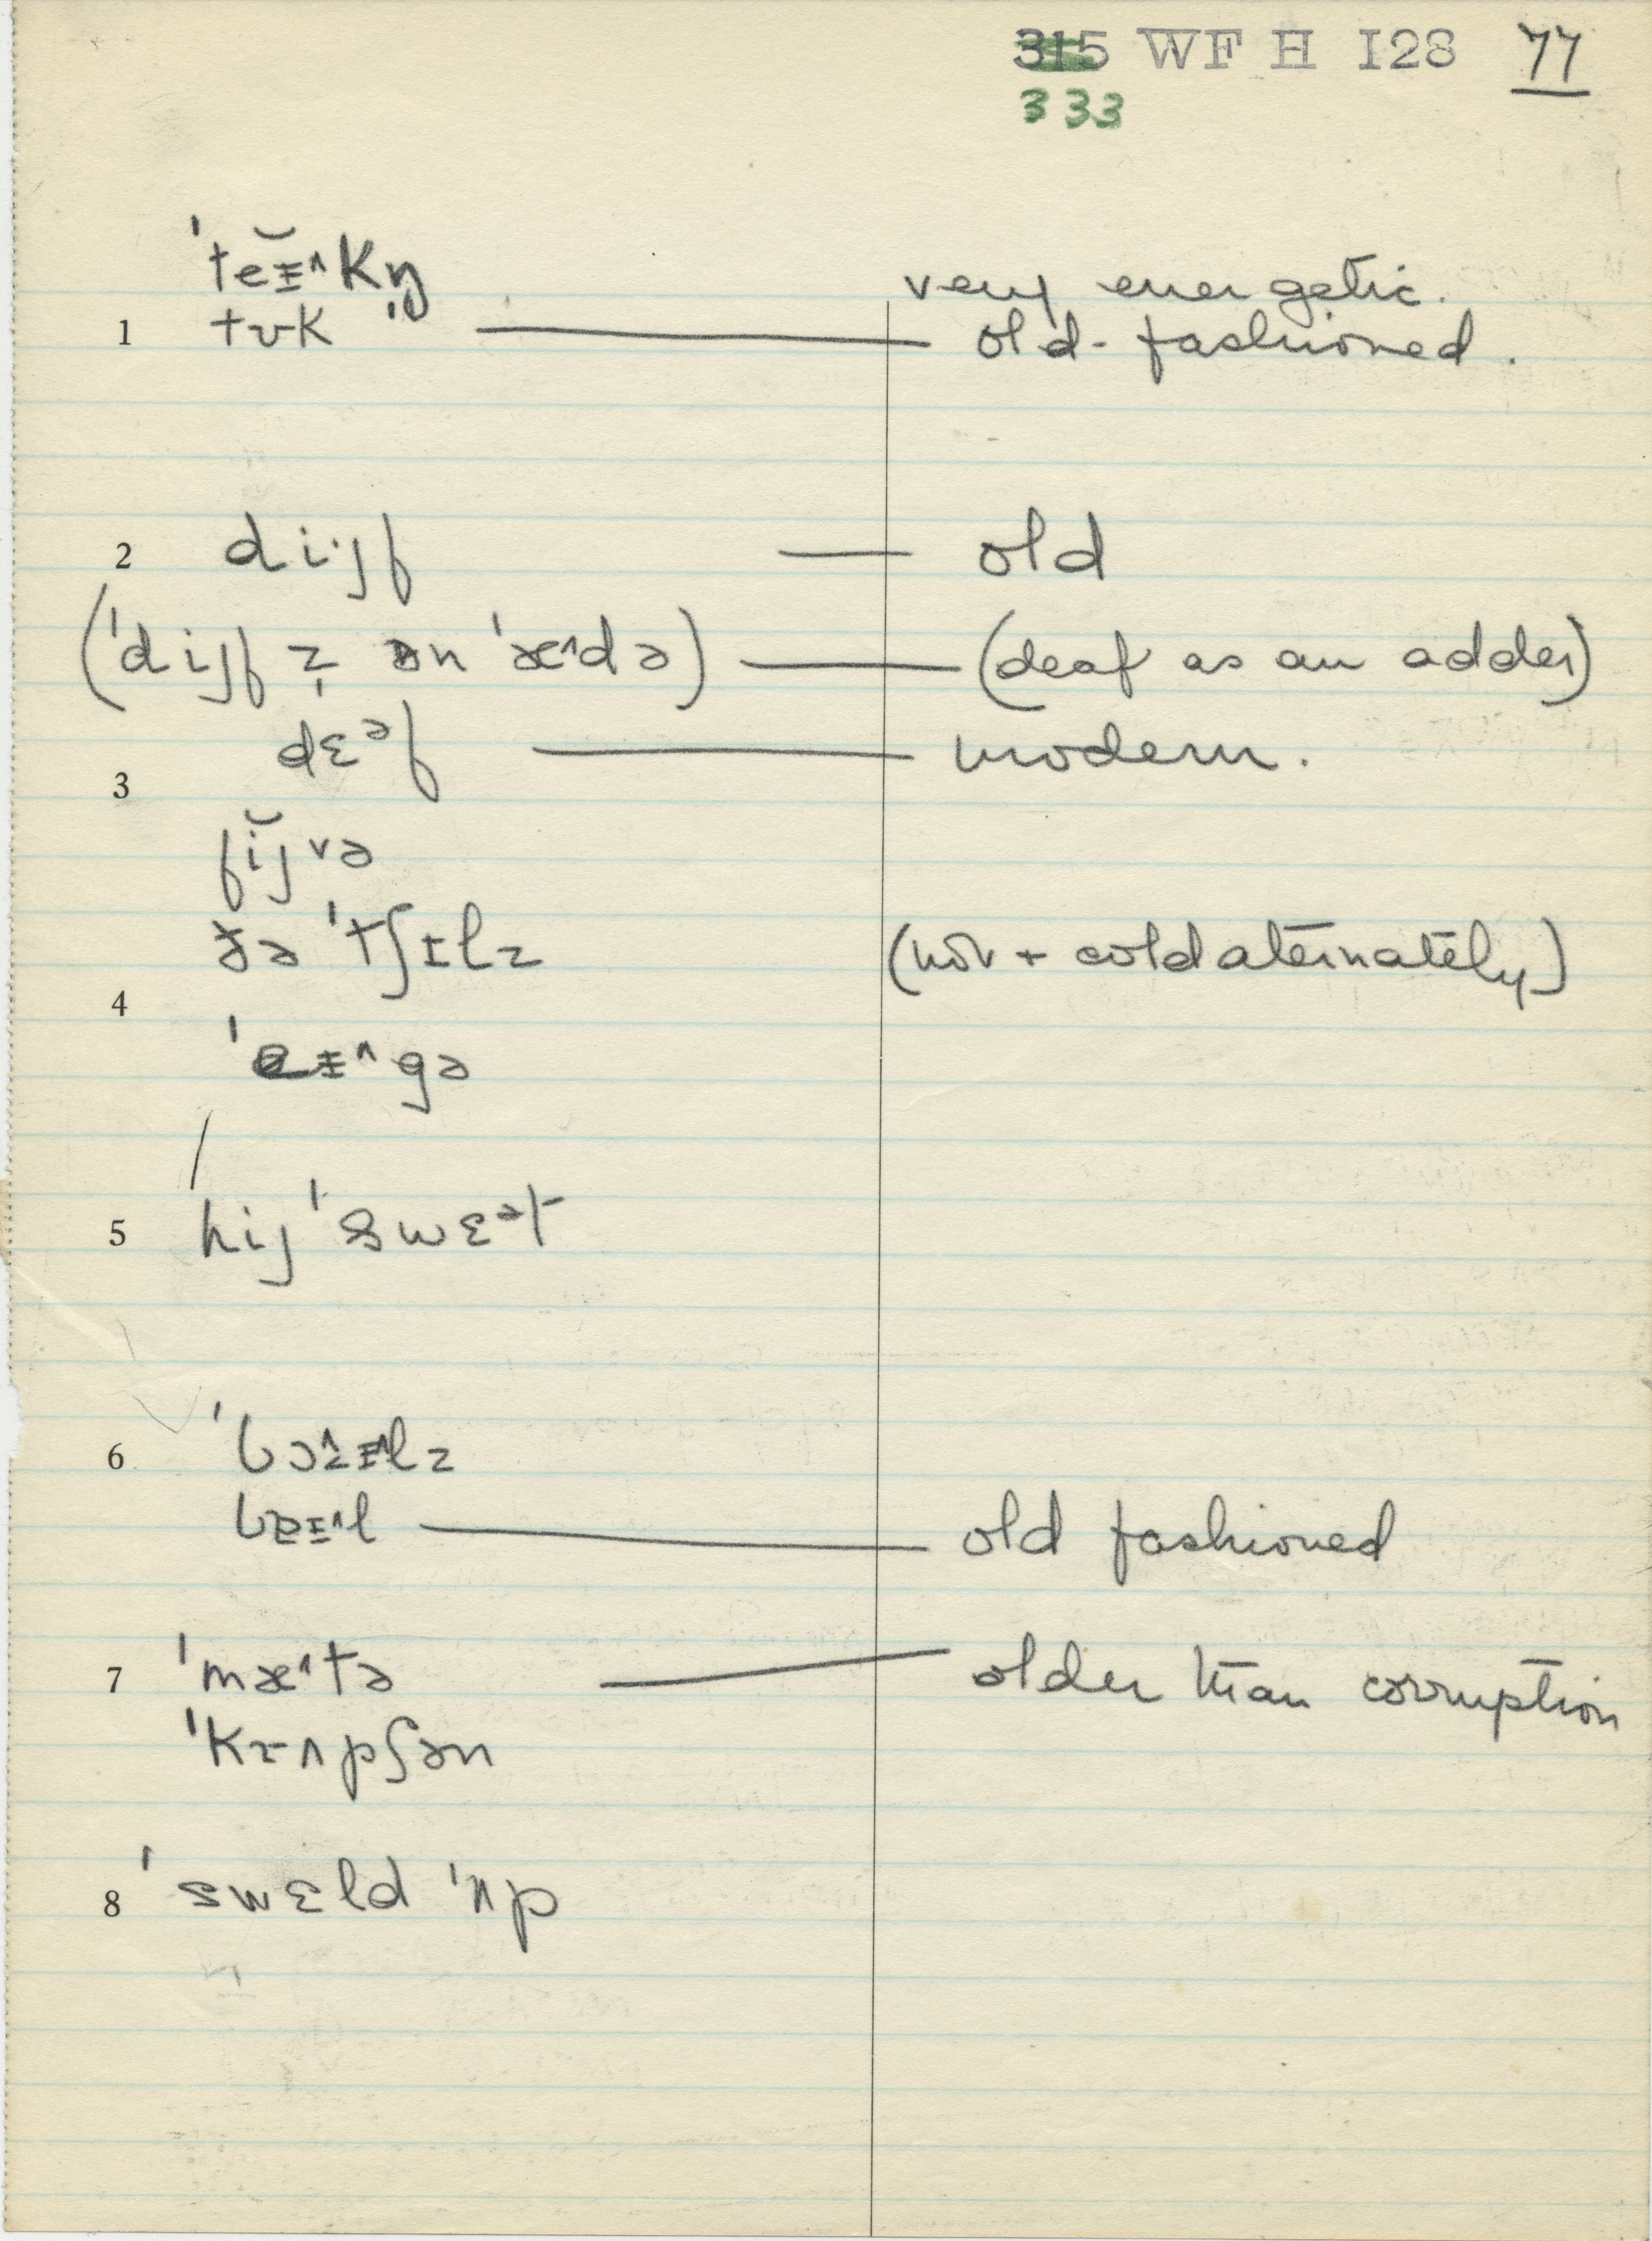 315 WF H I28 77
333
ˈteɪ̆ʌkŋ̩ very energetic.
1 tʊk — old-fashioned.
2 dijf — old
(ˈdijf z̩ ən ˈæʌdə) — (deaf as an adder)
dɛəf — modern.
3
fĭjvə
ðə ˈtʃɪlz (hot + cold aternately)
4
ˈeɪʌgə
5 hij ˈswɛət
6 ˈbɔɪlz
bɪʌl — old fashioned
7 ˈmæʌtə — older than corruption
ˈkrʌpʃən
8 ˈswɛld ˈʌp